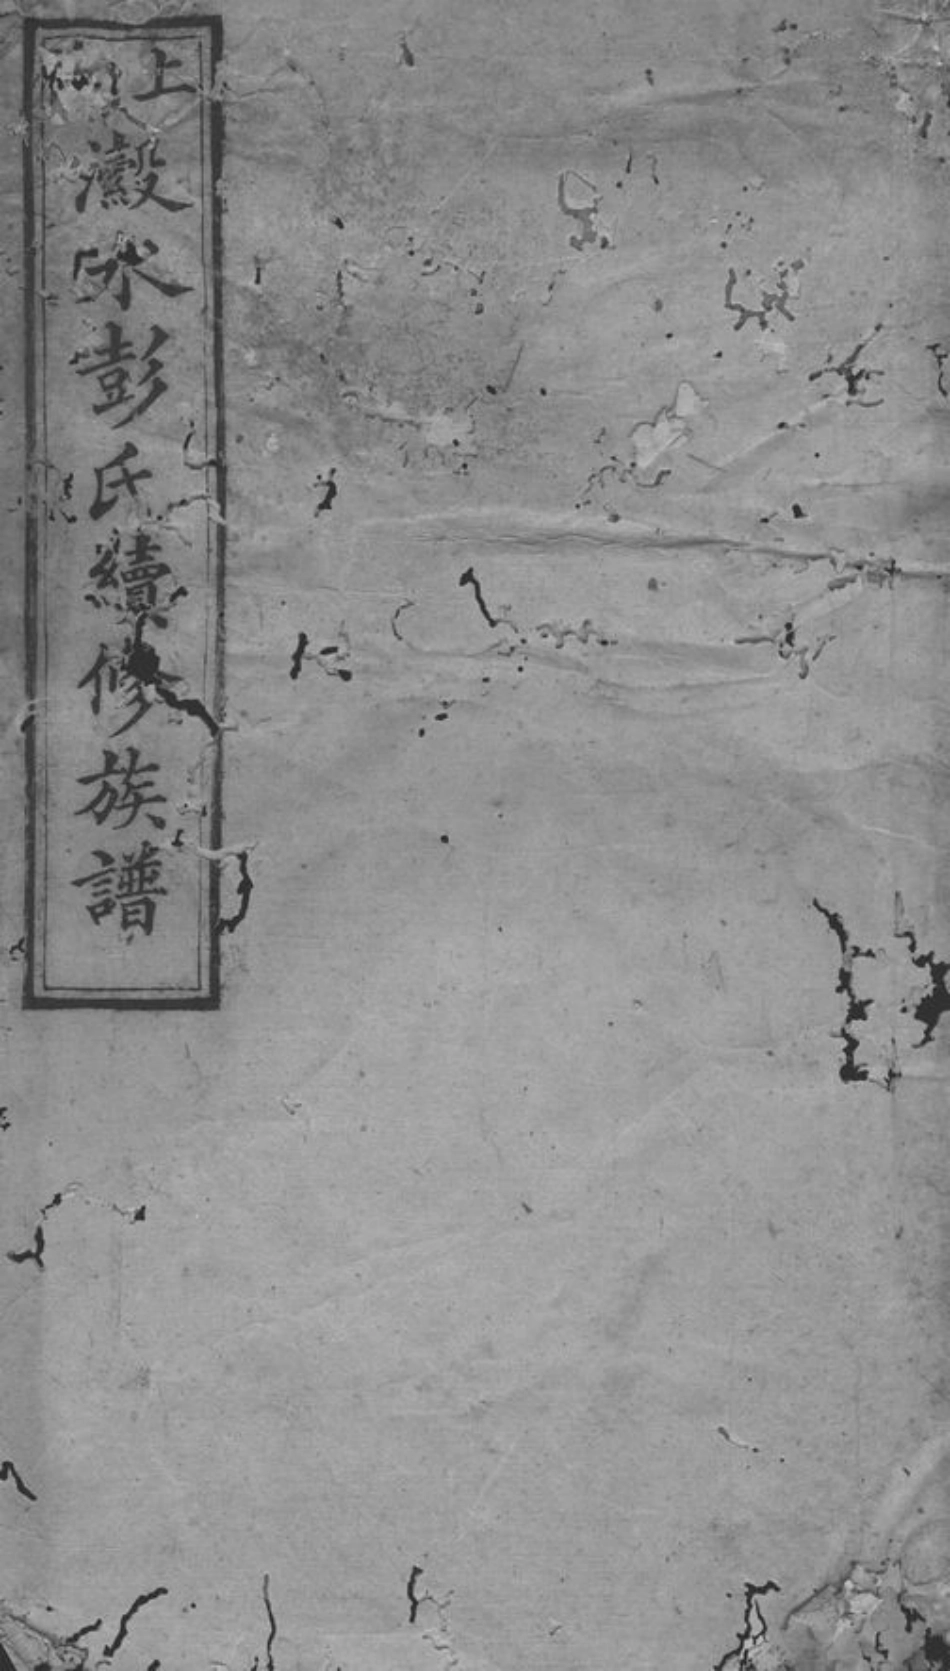 上
瀫水彭氏續修族譜